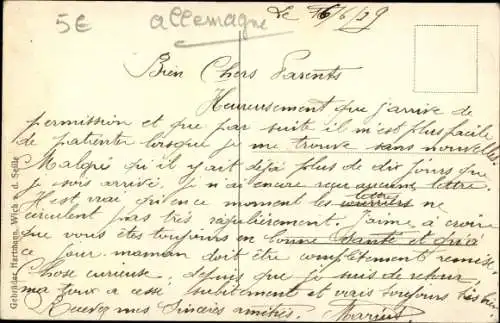 5€
allemagne
Le 16/6/29
Bien Chers Parents
Heureusement que j'arrive de
permission et que par suite il m'est plus facile
de patienter lorsque je me trouve sans nouvelles.
Malgré qu'il y ait déjà plus de dix jours que
je sois arrivé. Je n'ai encore reçu aucune lettre.
Il est vrai qu'en ce moment les lettres ne
circulent pas très régulièrement. J'aime à croire
que vous êtes toujours en bonne santé et qu'à
ce jour maman doit être complètement remise
Chose curieuse, depuis que je suis de retour,
ma toux a cessé, subitement et vais toujours très bien
Recevez mes sincères amitiés. Marius
Gebrüder Hartmann, Wick v. d. Seille